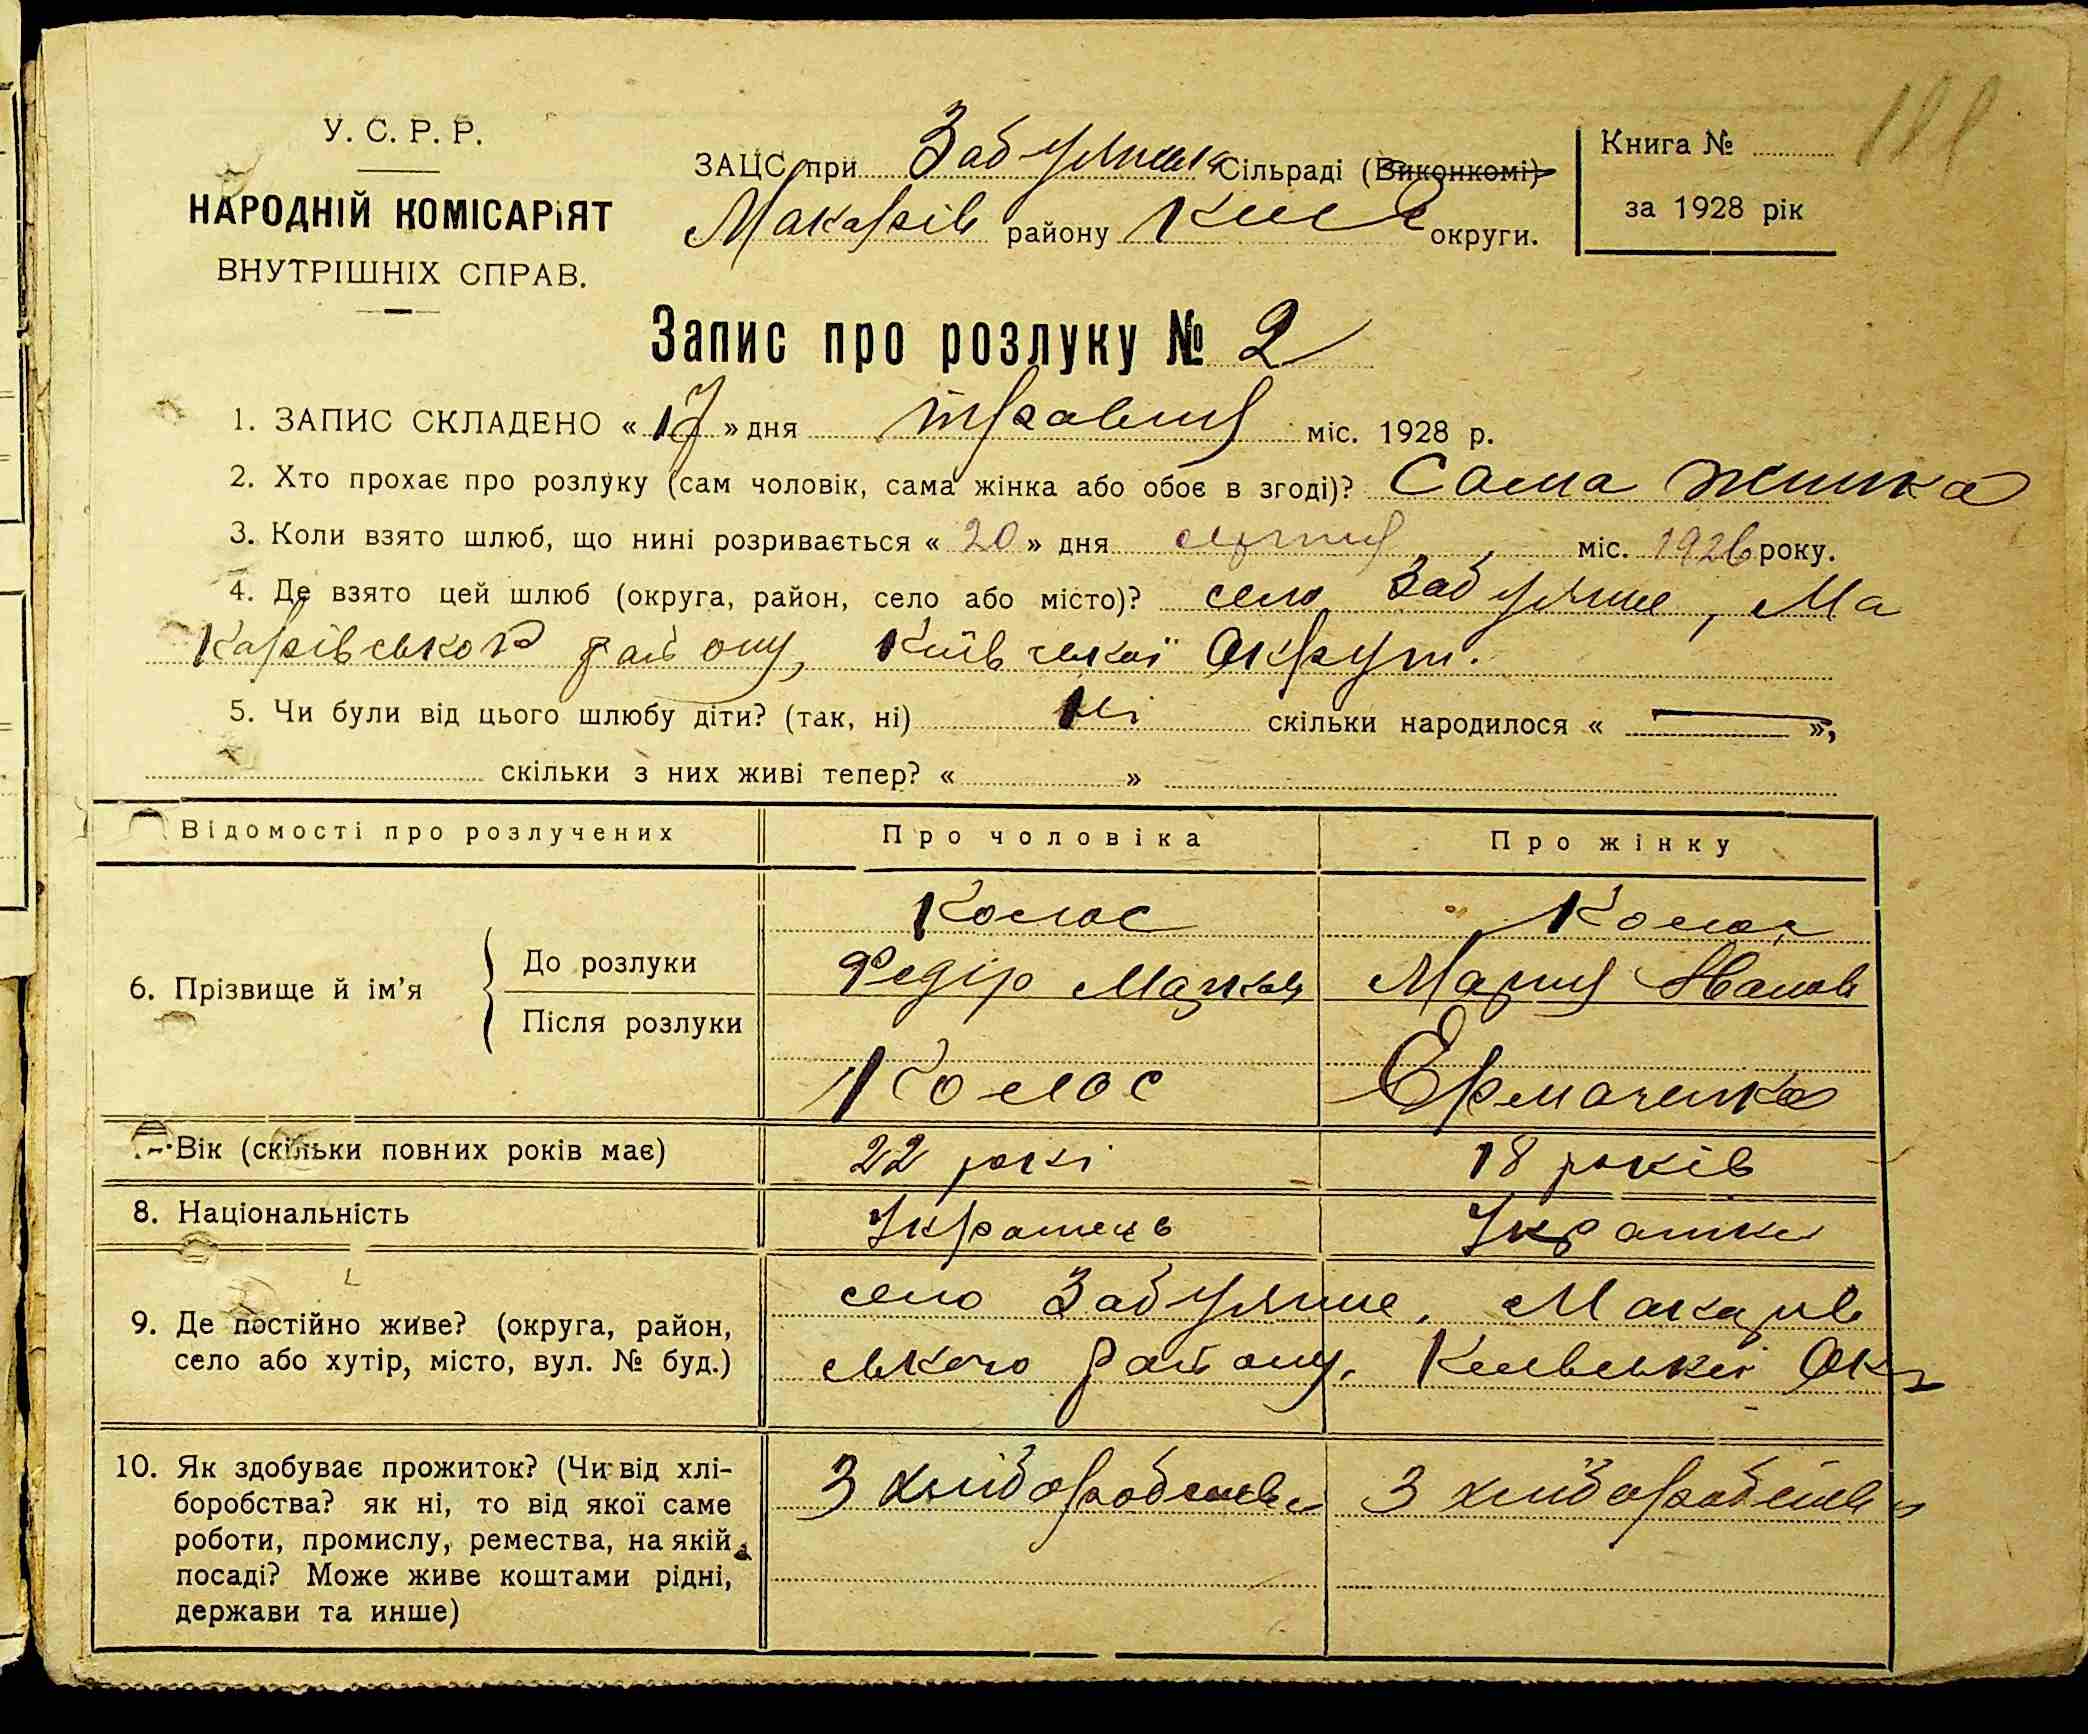 У. С. Р. Р.
НАРОДНІЙ КОМІСАРіЯТ
ВНУТРІШНІХ СПРАВ.
ЗАЦС при Забуянська Сільраді (Виконкомі)
Макарів району Киів округи.
Книга №
за 1928 рік
Запис про розлуку № 2
1. ЗАПИС СКЛАДЕНО « 17 » дня травня міс. 1928 р.
2. Хто прохає про розлуку (сам чоловік, сама жінка або обоє в згоді)? Сама жинка
3. Коли взято шлюб, що нині розривається « 20 » дня міс. 1926 року.
4. Де взято цей шлюб (округа, район, село або місто)? село Забуянне, Ма
карівського району, Київської Округи.
5. Чи були від цього шлюбу діти? (так, ні) Ні скільки народилося « — »,
скільки з них живі тепер? « »
Відомості про розлучених
Про чоловіка
Про жінку
6. Прізвище й ім’я
До розлуки
Після розлуки
Колос
Федір Марков
Колос
Колос
Мария Иванов
Ермаченко
7. Вік (скільки повних років має)
22 рокі
18 років
8. Національність
Украінець
Украінка
9. Де постійно живе? (округа, район,
село або хутір, місто, вул. № буд.)
село Забуянне, Макарів
ського району, Киівськоі Окр
10. Як здобуває прожиток? (Чи від хлі-
боробства? як ні, то від якої саме
роботи, промислу, ремества, на якій
посаді? Може живе коштами рідні,
держави та инше)
З хліборобства
З хліборобства